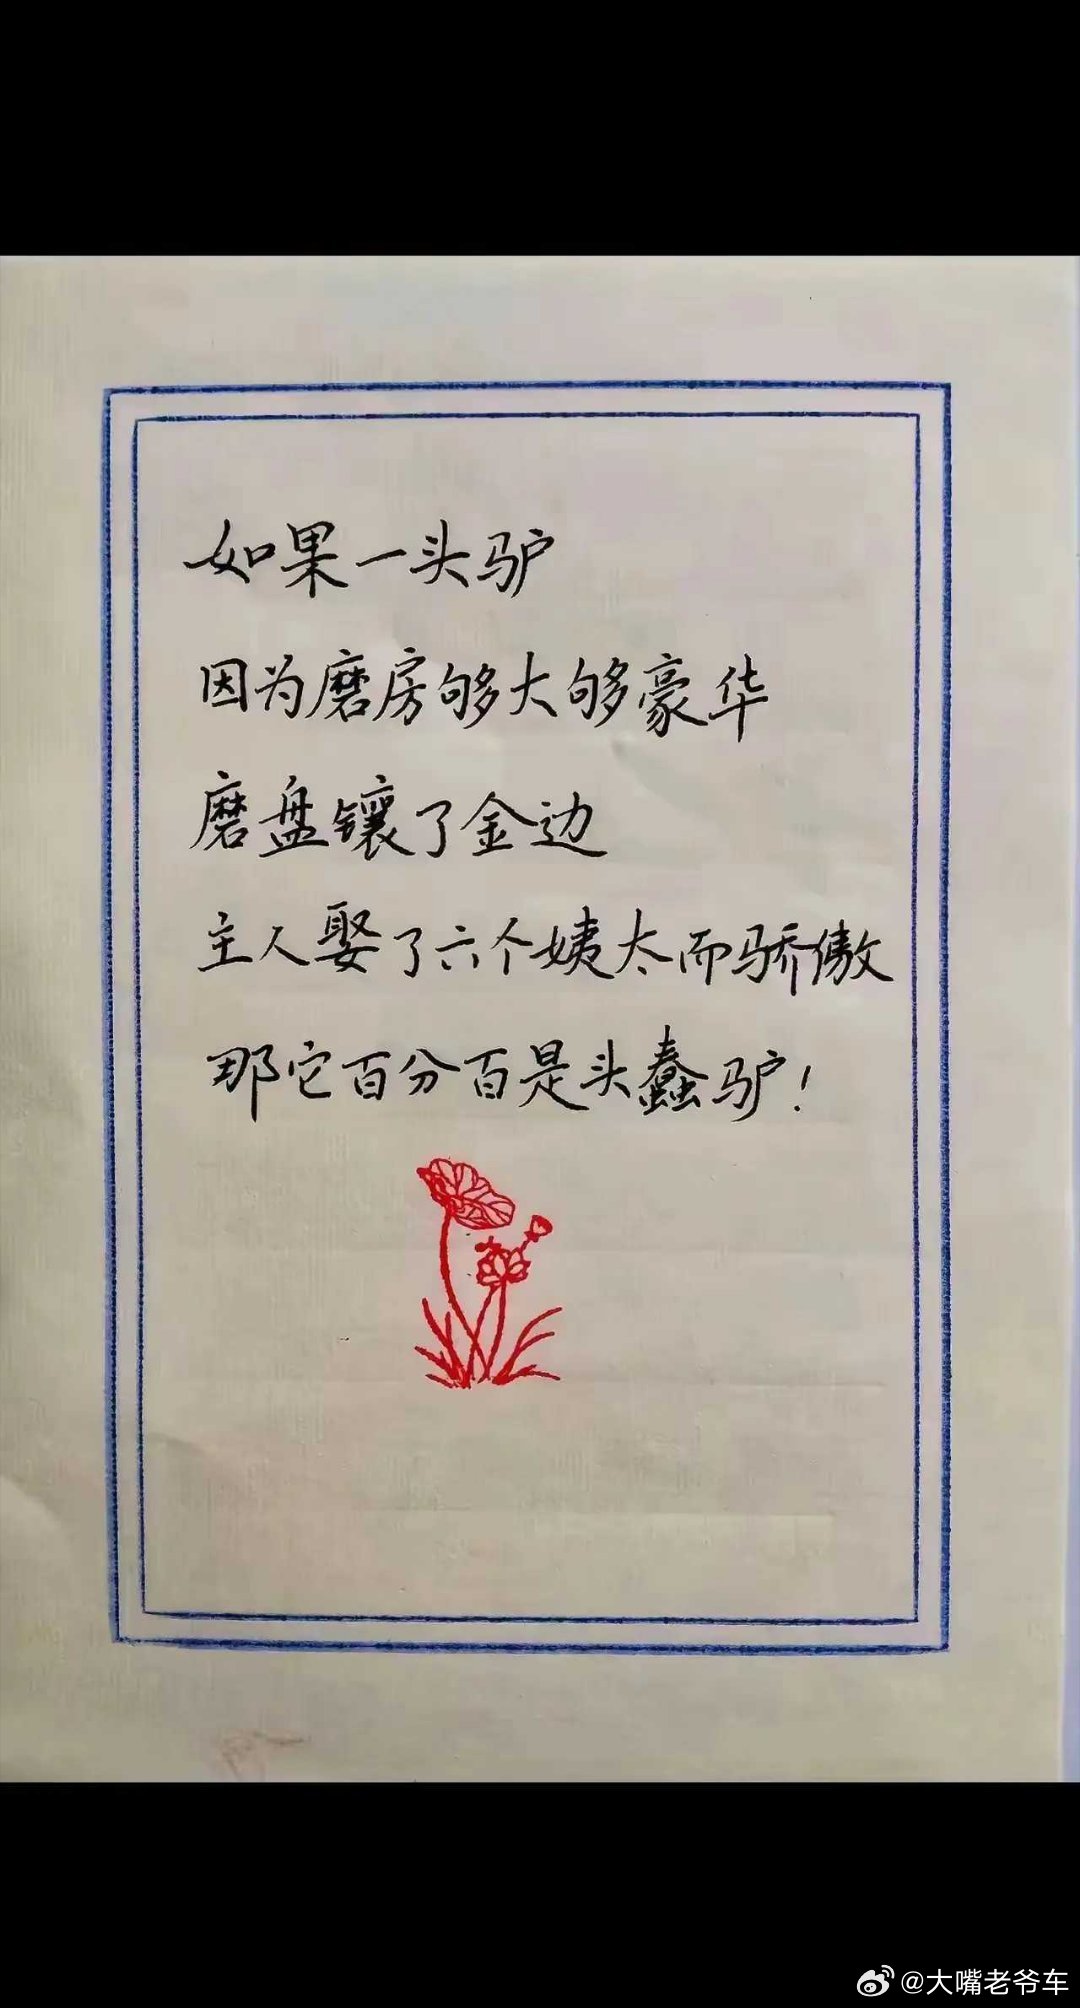 如果一头驴
因为磨房够大够豪华
磨盘镶了金边
主人娶了六个姨太而骄傲
那它百分百是头蠢驴！
@大嘴老爷车